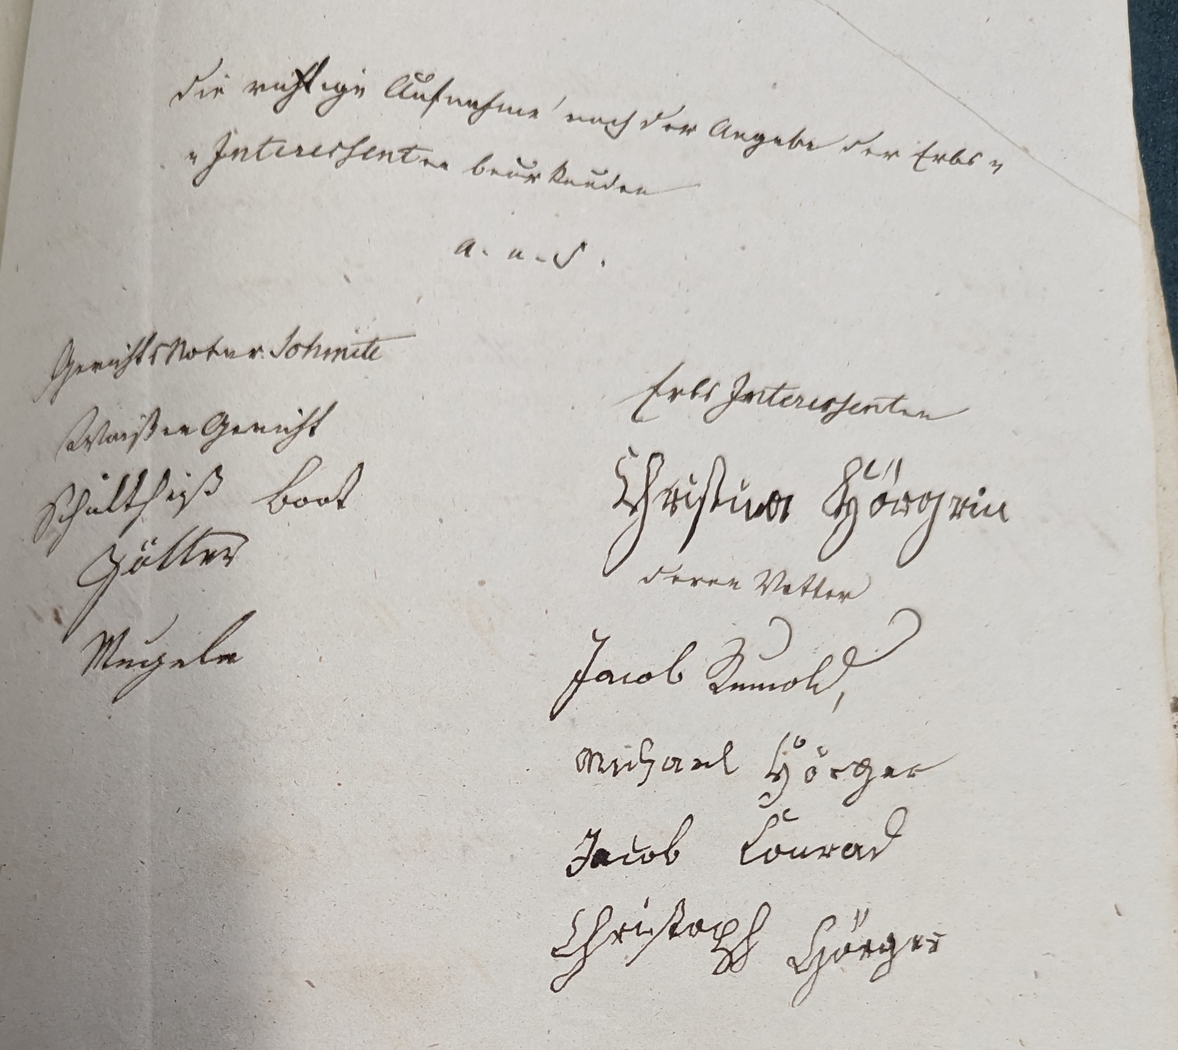 Die richtige Aufnahme nach der Angabe der Erbs„
„Interessenten beurkunden
a. u. S.
Gerichts Notar Schmidt
Waißen Gericht
Schultheiß boos
Götter
Mugele
Erbs Interessenten
Christina Hörgerin
deren Vetter
Jacob Rumold,
Michael Hörger
Jacob Conrad
Christoph Hörger